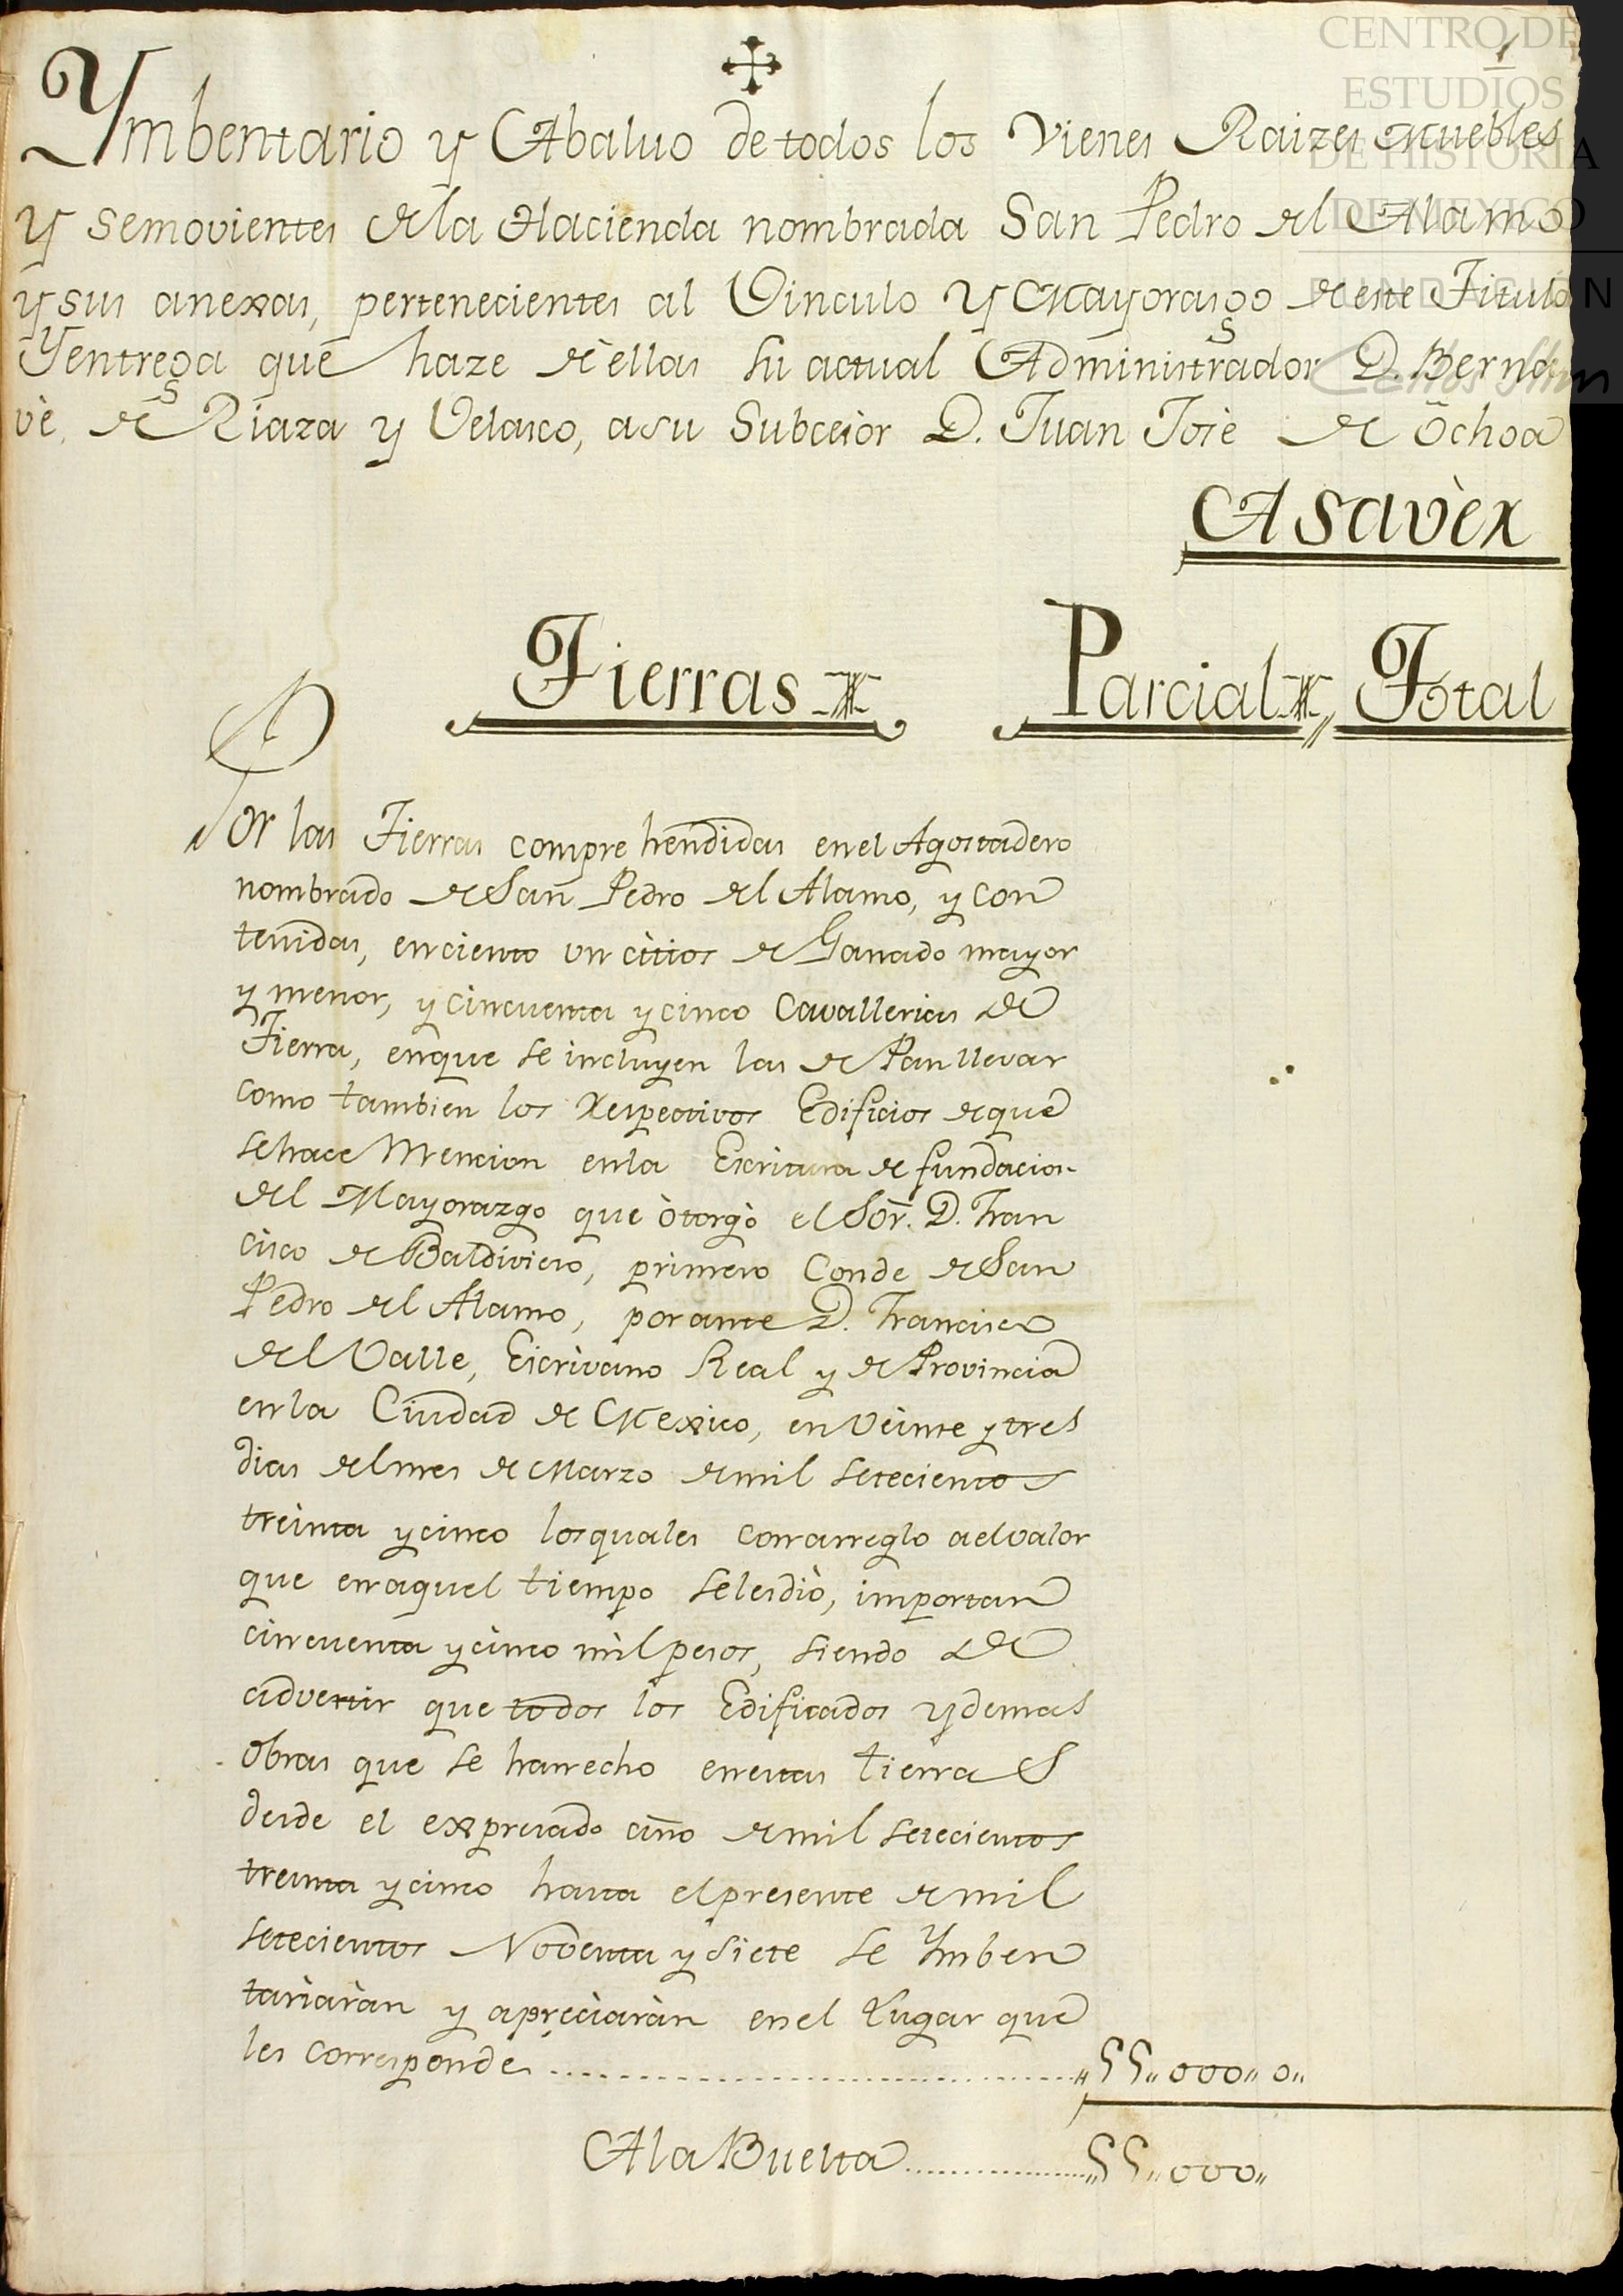 CENTRO DE
ESTUDIOS
DE HISTORIA
DE MEXICO
FUNDACIÓN
Carlos Slim
1
Ymbentario y Abaluo de todos los Vienes Raizes Muebles
y semovientes de la Hacienda nombrada San Pedro del Alamo
y sus anexas, pertenecientes al Vinculo y Mayorasgo de este Titulo
Y entrega que haze de ellas su actual Administrador D. Berna
vè, de Riaza y Velasco, a su Subcesòr D. Juan Josè de Ochoa
A savèr
Tierras Parcial Total
Por las Tierras comprehendidas en el Agostadero
nombrado de San Pedro del Alamo, y con
tenidas, en ciento un citios de Ganado mayor
y menor, y cincuenta y cinco Cavallerias de
Tierra, en que se incluyen las de Pan llevar
como tambien los Respectivos Edificios de que
se hace Mencion en la Escritura de fundacion
del Mayorazgo que òtorgò el Sõr. D. Fran
cisco de Baldivieso, primero Conde de San
Pedro del Alamo, por ante D. Francisco
del Valle, Escrivano Real y de Provincia
en la Ciudad de Mexico, en Veinte y tres
dias del mes de Marzo de mil setecientos
treinta y cinco los quales con arreglo a el valor
que en aquel tiempo se les diò, importan
cincuenta y cinco mil pesos, siendo de
advertir que todos los Edificados y demas
obras que se han echo en estas tierras
desde el expresado año de mil setecientos
treinta y cinco hasta el presente de mil
setecientos Noventa y siete se Ymben
tariaràn y apreciaràn en el Lugar que
les corresponde ,,55,,000,,0,,
A la Buelta ,,55,,000,,